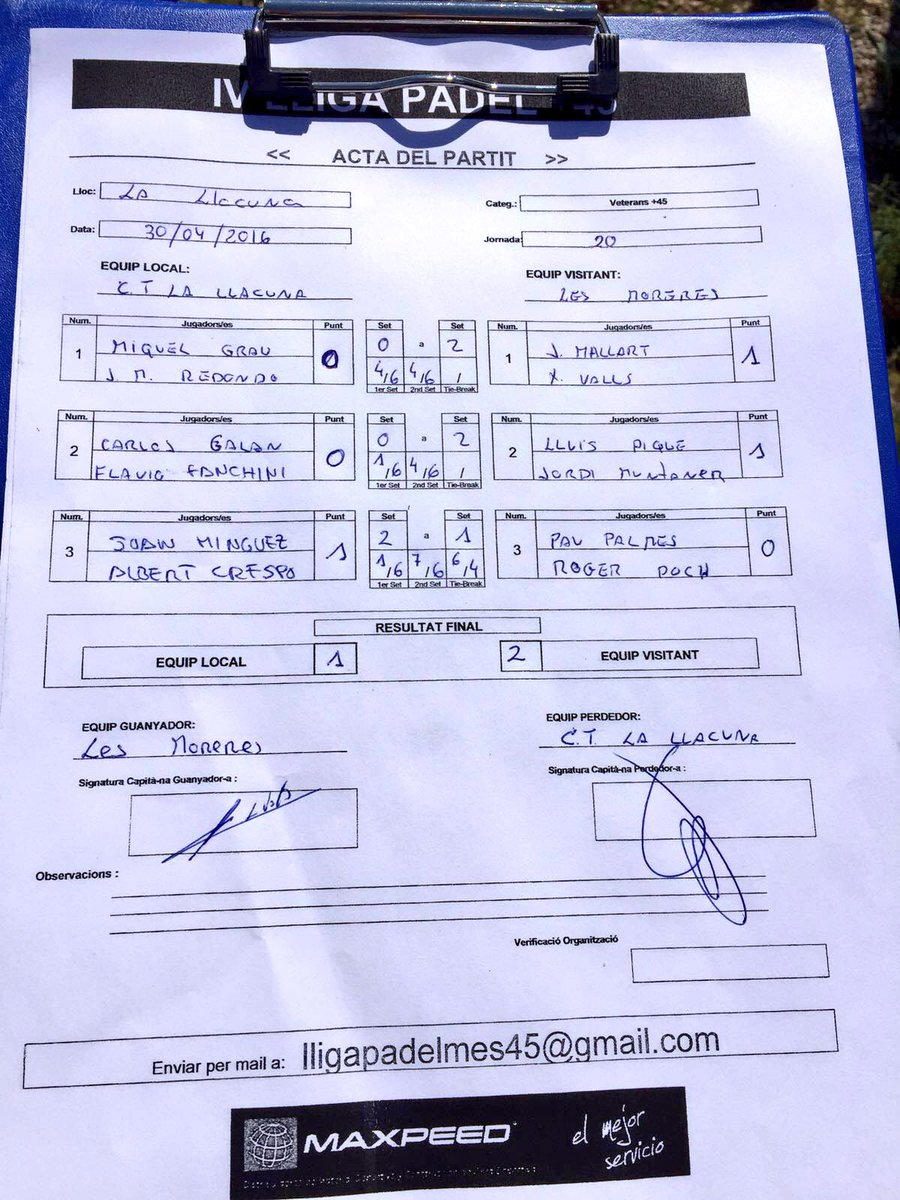 IV LLIGA PADEL +45
<< ACTA DEL PARTIT >>
Lloc: LA LLACUNA
Categ.: Veterans +45
Data: 30/04/2016
Jornada: 20
EQUIP LOCAL: EQUIP VISITANT:
C.T LA LLACUNA LES MORERES
Num. Jugadors/es Punt Set Set Num. Jugadors/es Punt
1 MIQUEL GRAU 0 0 a 2 1 J. MALLART 1
J. M. REDONDO 4/6 4/6 / X. VALLS
1er Set 2nd Set Tie-Break
Num. Jugadors/es Punt Set Set Num. Jugadors/es Punt
2 CARLOS GALAN 0 0 a 2 2 LLUIS PIQUE 1
FLAVIO FANCHINI 1/6 4/6 / JORDI MUNTANER
1er Set 2nd Set Tie-Break
Num. Jugadors/es Punt Set Set Num. Jugadors/es Punt
3 JOAN MINGUEZ 1 2 a 1 3 PAU PALMES 0
ALBERT CRESPO 1/6 7/6 6/4 ROGER POCH
1er Set 2nd Set Tie-Break
RESULTAT FINAL
EQUIP LOCAL 1 2 EQUIP VISITANT
EQUIP GUANYADOR: EQUIP PERDEDOR:
Les Moreres C.T. LA LLACUNA
Signatura Capità-na Guanyador-a : Signatura Capità-na Perdedor-a :
Observacions :
Verificació Organització
Enviar per mail a: lligapadelmes45@gmail.com
MAXPEED el mejor
servicio